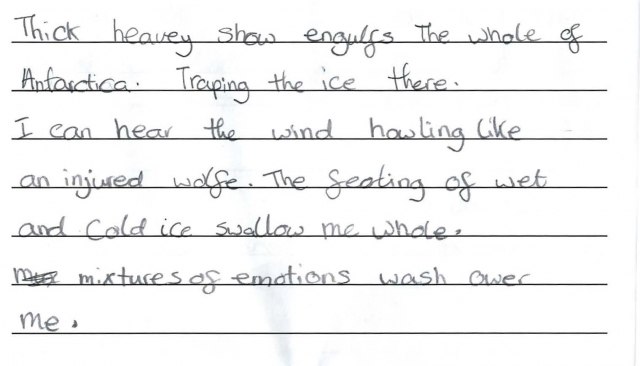 Thick heavey show engulfs The whole of
Antarctica. Traping the ice there.
I can hear the wind howling like
an injured wolfe. The feating of wet
and Cold ice swallow me whole.
mixtures of emotions wash ower
me.